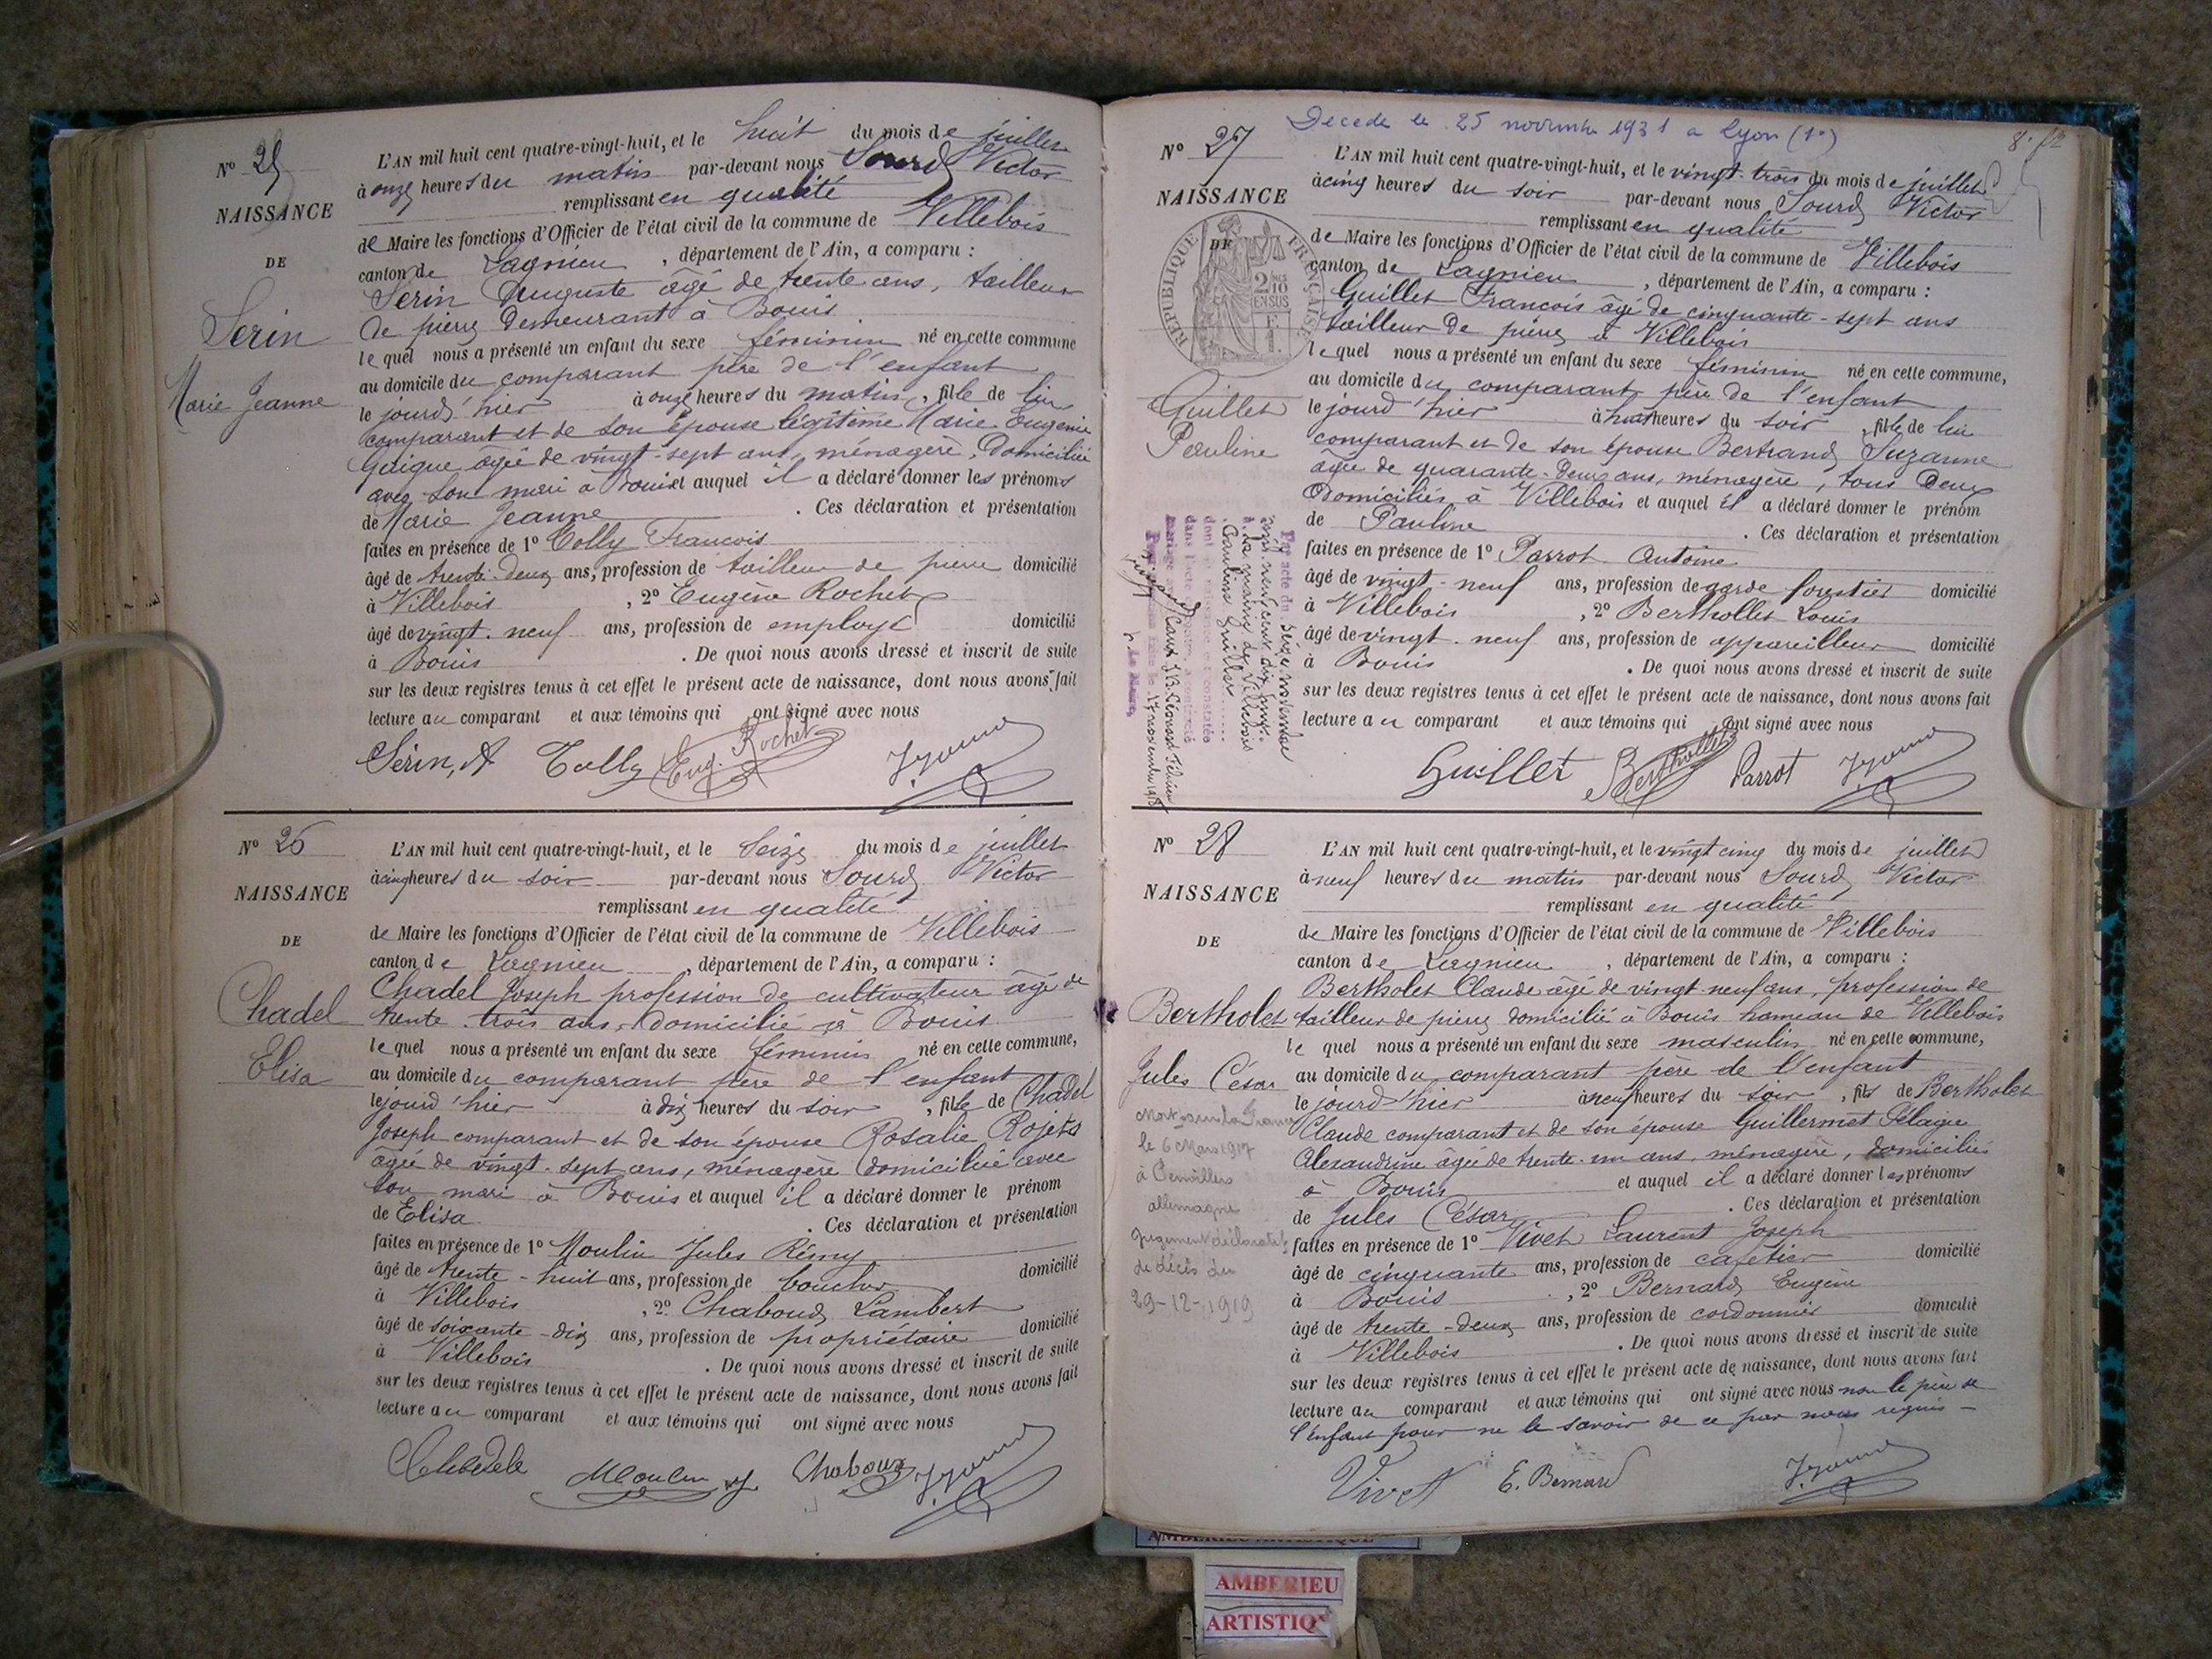 N° 25
NAISSANCE
DE
Serin
Marie Jeanne
L'AN mil huit cent quatre-vingt-huit, et le huit du mois de juillet
à onze heures du matin par-devant nous Sourd Victor
remplissant en qualité
de Maire les fonctions d'Officier de l'état civil de la commune de Villebois
canton de Lagnieu, département de l'Ain, a comparu :
Serin Auguste âgé de trente ans, tailleur
de pierre demeurant à Bouis
lequel nous a présenté un enfant du sexe féminin né en cette commune
au domicile du comparant père de l'enfant
le jourd'hier à onze heures du matin, fille de lui
comparant et de son épouse légitime Marie Eugénie
Guigue âgée de vingt-sept ans, ménagère, domiciliée
avec son mari à Bouis et auquel il a déclaré donner les prénoms
de Marie Jeanne. Ces déclaration et présentation
faites en présence de 1° Tolly Francois
âgé de trente-deux ans, profession de tailleur de pierre domicilié
à Villebois, 2° Eugène Rochet
âgé de vingt-neuf ans, profession de employé domicilié
à Bouis. De quoi nous avons dressé et inscrit de suite
sur les deux registres tenus à cet effet le présent acte de naissance, dont nous avons fait
lecture au comparant et aux témoins qui ont signé avec nous
Serin, A Tolly Eug. Rochet
N° 26
NAISSANCE
DE
Chadel
Elisa
L'AN mil huit cent quatre-vingt-huit, et le Seize du mois de juillet
à cinq heures du soir par-devant nous Sourd Victor
remplissant en qualité
de Maire les fonctions d'Officier de l'état civil de la commune de Villebois
canton de Lagnieu, département de l'Ain, a comparu :
Chadel Joseph profession de cultivateur âgé de
trente-trois ans, domicilié à Bouis
lequel nous a présenté un enfant du sexe féminin né en cette commune,
au domicile du comparant père de l'enfant
le jourd'hier à dix heures du soir, fille de Chadel
Joseph comparant et de son épouse Rosalie Rojets
âgée de vingt-sept ans, ménagère domiciliée avec
son mari à Bouis et auquel il a déclaré donner le prénom
de Elisa. Ces déclaration et présentation
faites en présence de 1° Moulin Jules Rémy
âgé de trente-huit ans, profession de boucher domicilié
à Villebois, 2° Chaboud Lambert
âgé de soixante-dix ans, profession de propriétaire domicilié
à Villebois. De quoi nous avons dressé et inscrit de suite
sur les deux registres tenus à cet effet le présent acte de naissance, dont nous avons fait
lecture au comparant et aux témoins qui ont signé avec nous
Moulin Chaboux
Decede le 25 novembre 1931 a Lyon (1e)
N° 27
NAISSANCE
DE
REPUBLIQUE FRANÇAISE
2/10 EN SUS
Guillet
Pauline
L'AN mil huit cent quatre-vingt-huit, et le vingt-trois du mois de juillet
à cinq heures du soir par-devant nous Sourd Victor
remplissant en qualité
de Maire les fonctions d'Officier de l'état civil de la commune de Villebois
canton de Lagnieu, département de l'Ain, a comparu :
Guillet Francois âgé de cinquante-sept ans
tailleur de pierre à Villebois
lequel nous a présenté un enfant du sexe féminin né en cette commune,
au domicile du comparant père de l'enfant
le jourd'hier à huit heures du soir, fille de lui
comparant et de son épouse Bertrand Suzanne
âgée de quarante-deux ans, ménagère, tous deux
domiciliés à Villebois et auquel il a déclaré donner le prénom
de Pauline. Ces déclaration et présentation
faites en présence de 1° Parrot Antoine
âgé de vingt-neuf ans, profession de garde forestier domicilié
à Villebois, 2° Bertholler Louis
âgé de vingt-neuf ans, profession de appareilleur domicilié
à Bouis. De quoi nous avons dressé et inscrit de suite
sur les deux registres tenus à cet effet le présent acte de naissance, dont nous avons fait
lecture au comparant et aux témoins qui ont signé avec nous
Guillet Parrot
Par acte du seize novembre
à la mairie de Villebois
Pauline Guillet
dont la naissance est constatée
mariage avec
Le Maire,
N° 28
NAISSANCE
DE
Bertholet
Jules César
le 6 Mars 1917
allemagne
Jugement déclaratif
de décès du
29-12-1919
L'AN mil huit cent quatre-vingt-huit, et le vingt cinq du mois de juillet
à neuf heures du matin par-devant nous Sourd Victor
remplissant en qualité
de Maire les fonctions d'Officier de l'état civil de la commune de Villebois
canton de Lagnieu, département de l'Ain, a comparu :
Bertholet Claude âgé de vingt-neuf ans, profession de
tailleur de pierre domicilié à Bouis hameau de Villebois
lequel nous a présenté un enfant du sexe masculin né en cette commune,
au domicile du comparant père de l'enfant
le jourd'hier à neuf heures du soir, fils de Bertholet
Claude comparant et de son épouse Guillermet Pélagie
Alexandrine âgée de trente-un ans, ménagère, domiciliés
à Bouis et auquel il a déclaré donner les prénoms
de Jules César. Ces déclaration et présentation
faites en présence de 1° Vivet Laurent Joseph
âgé de cinquante ans, profession de cafetier domicilié
à Bouis, 2° Bernard Eugène
âgé de trente-deux ans, profession de cordonnier domicilié
à Villebois. De quoi nous avons dressé et inscrit de suite
sur les deux registres tenus à cet effet le présent acte de naissance, dont nous avons fait
lecture au comparant et aux témoins qui ont signé avec nous non le père de
l'enfant pour ne le savoir de ce par nous requis
Vivet E. Bernard
AMBERIEU
ARTISTIQ